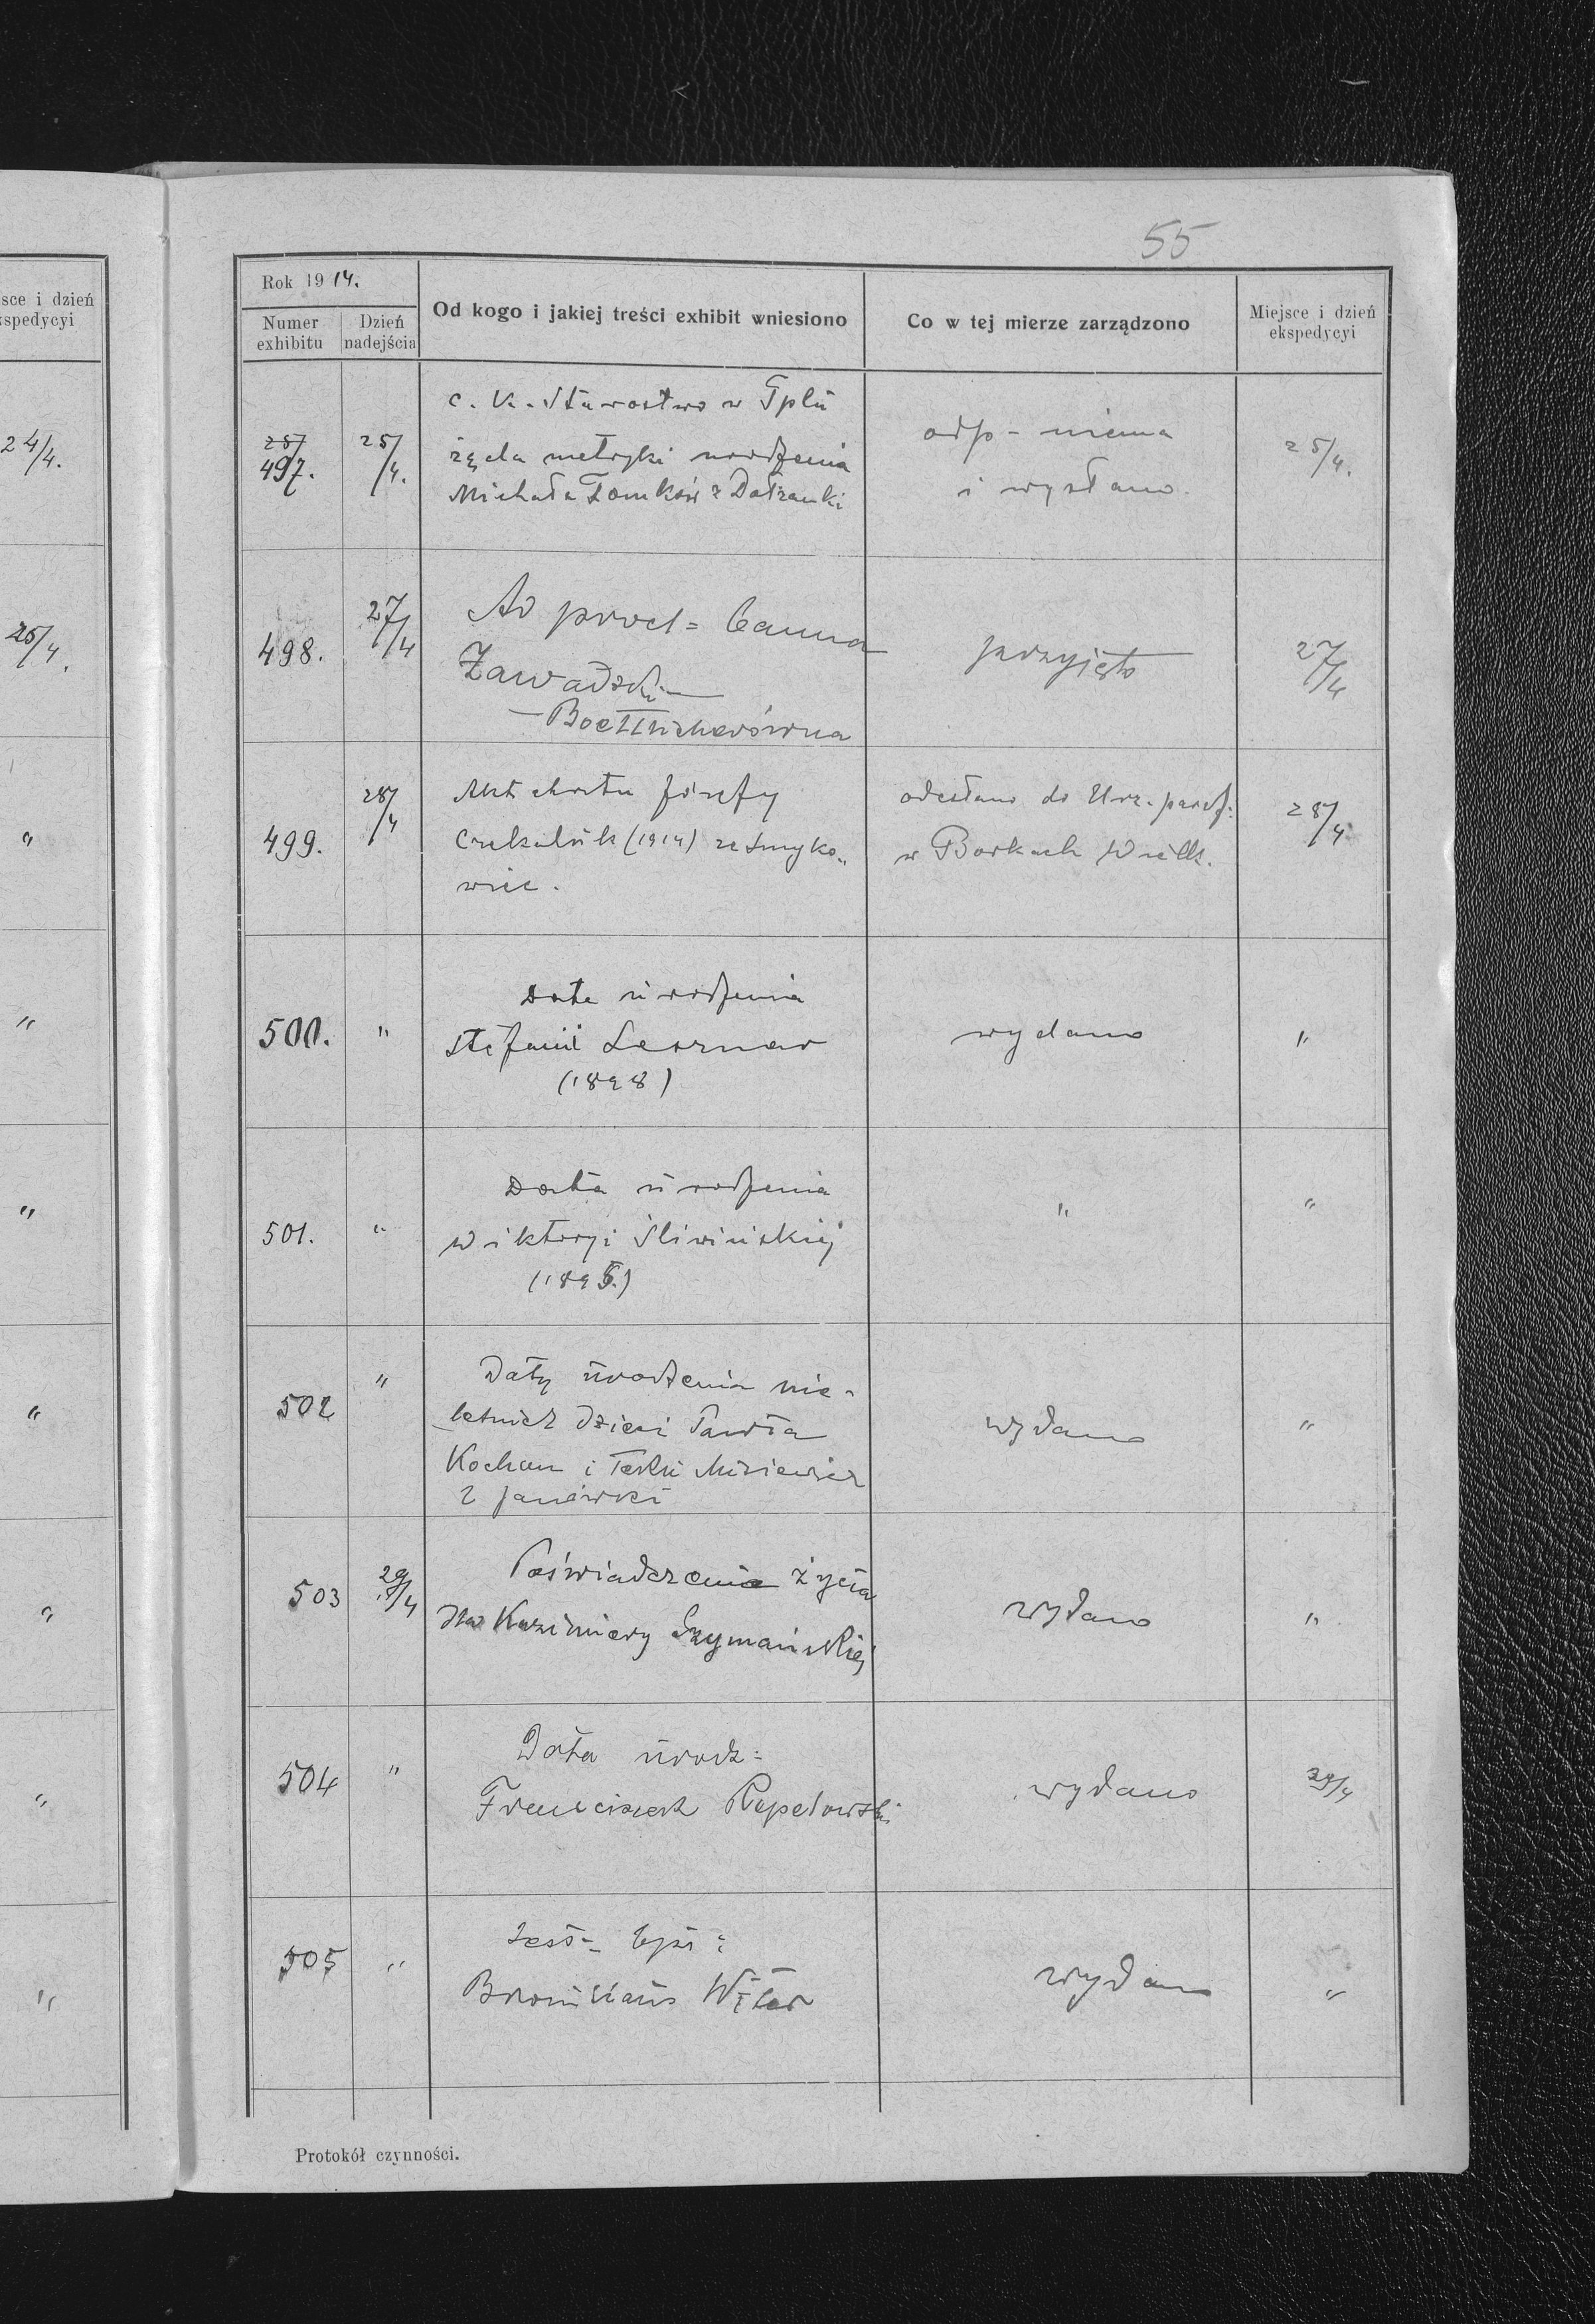 55
sce i dzień
kspedycyi
24/4.
25/4.
"
"
"
"
"
"
"
Rok 1914.
Numer exhibitu
Dzień nadejścia
Od kogo i jakiej treści exhibit wniesiono
Co w tej mierze zarządzono
Miejsce i dzień ekspedycyi
497.
25/4.
c. k. Starostwo w Tplu
żąda metryki urodzenia
Michała z
odp-niema
i wysłano
25/4.
498.
27/4
Ad procl=
Zawadzki—
—Boettricherówna
przyjęto
27/4
499.
28/4
Met chrztu Józefy
(1914) ze Smyko„
wiec.
odesłano do Urz. paraf:
w Borkach Wielk.
28/4
500.
"
Data urodzenia
Stefanii
(1898)
wydano
"
501.
"
Data urodzenia
Wiktoryi Śliwińskiej
"
"
502
"
Daty urodzenia nie-
letnich dzieci Pawła
Kochan i Tekli
z Janówki
wydano
"
503
29/4
Poświadczenie życia
dla Kazimiery Szymańskiej
wydano
"
504
"
Data urodz:
Franciszek Repetowski
wydano
29/4
505
"
Test=
Bronisław
wydano
"
Protokół czynności.